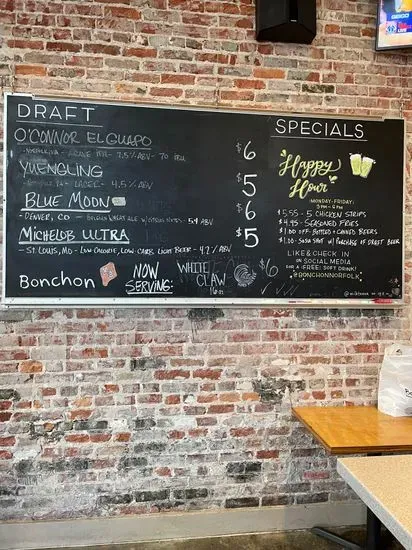 DRAFT
O'CONNOR EL GUAPO
-NORFOLK, VA - AGAVE IPA - 7.5% ABV - 70 IBU
$6
YUENGLING
LAGER - 4.5% ABV
$5
BLUE MOON
-DENVER, CO - BELGIAN WHEAT ALE W/ CITRUS NOTES - 5.4 ABV
$6
MICHELOB ULTRA
-ST. LOUIS, MO - LOW CALORIE, LOW-CARB LIGHT BEER - 4.2% ABV
$5
BONCHON
NOW
SERVING:
WHITE
CLAW
16 oz
$6
SPECIALS
Happy
Hour
MONDAY-FRIDAY:
3PM-6PM
$5.55 - 5 CHICKEN STRIPS
$4.95 - SEASONED FRIES
$1.00 OFF - BOTTLED & CANNED BEERS
$1.00 - SOJU SHOT W/ PURCHASE OF DRAFT BEER
LIKE & CHECK IN
ON SOCIAL MEDIA
FOR A FREE SOFT DRINK!
@BONCHONNORFOLK
GEICO
LIVE